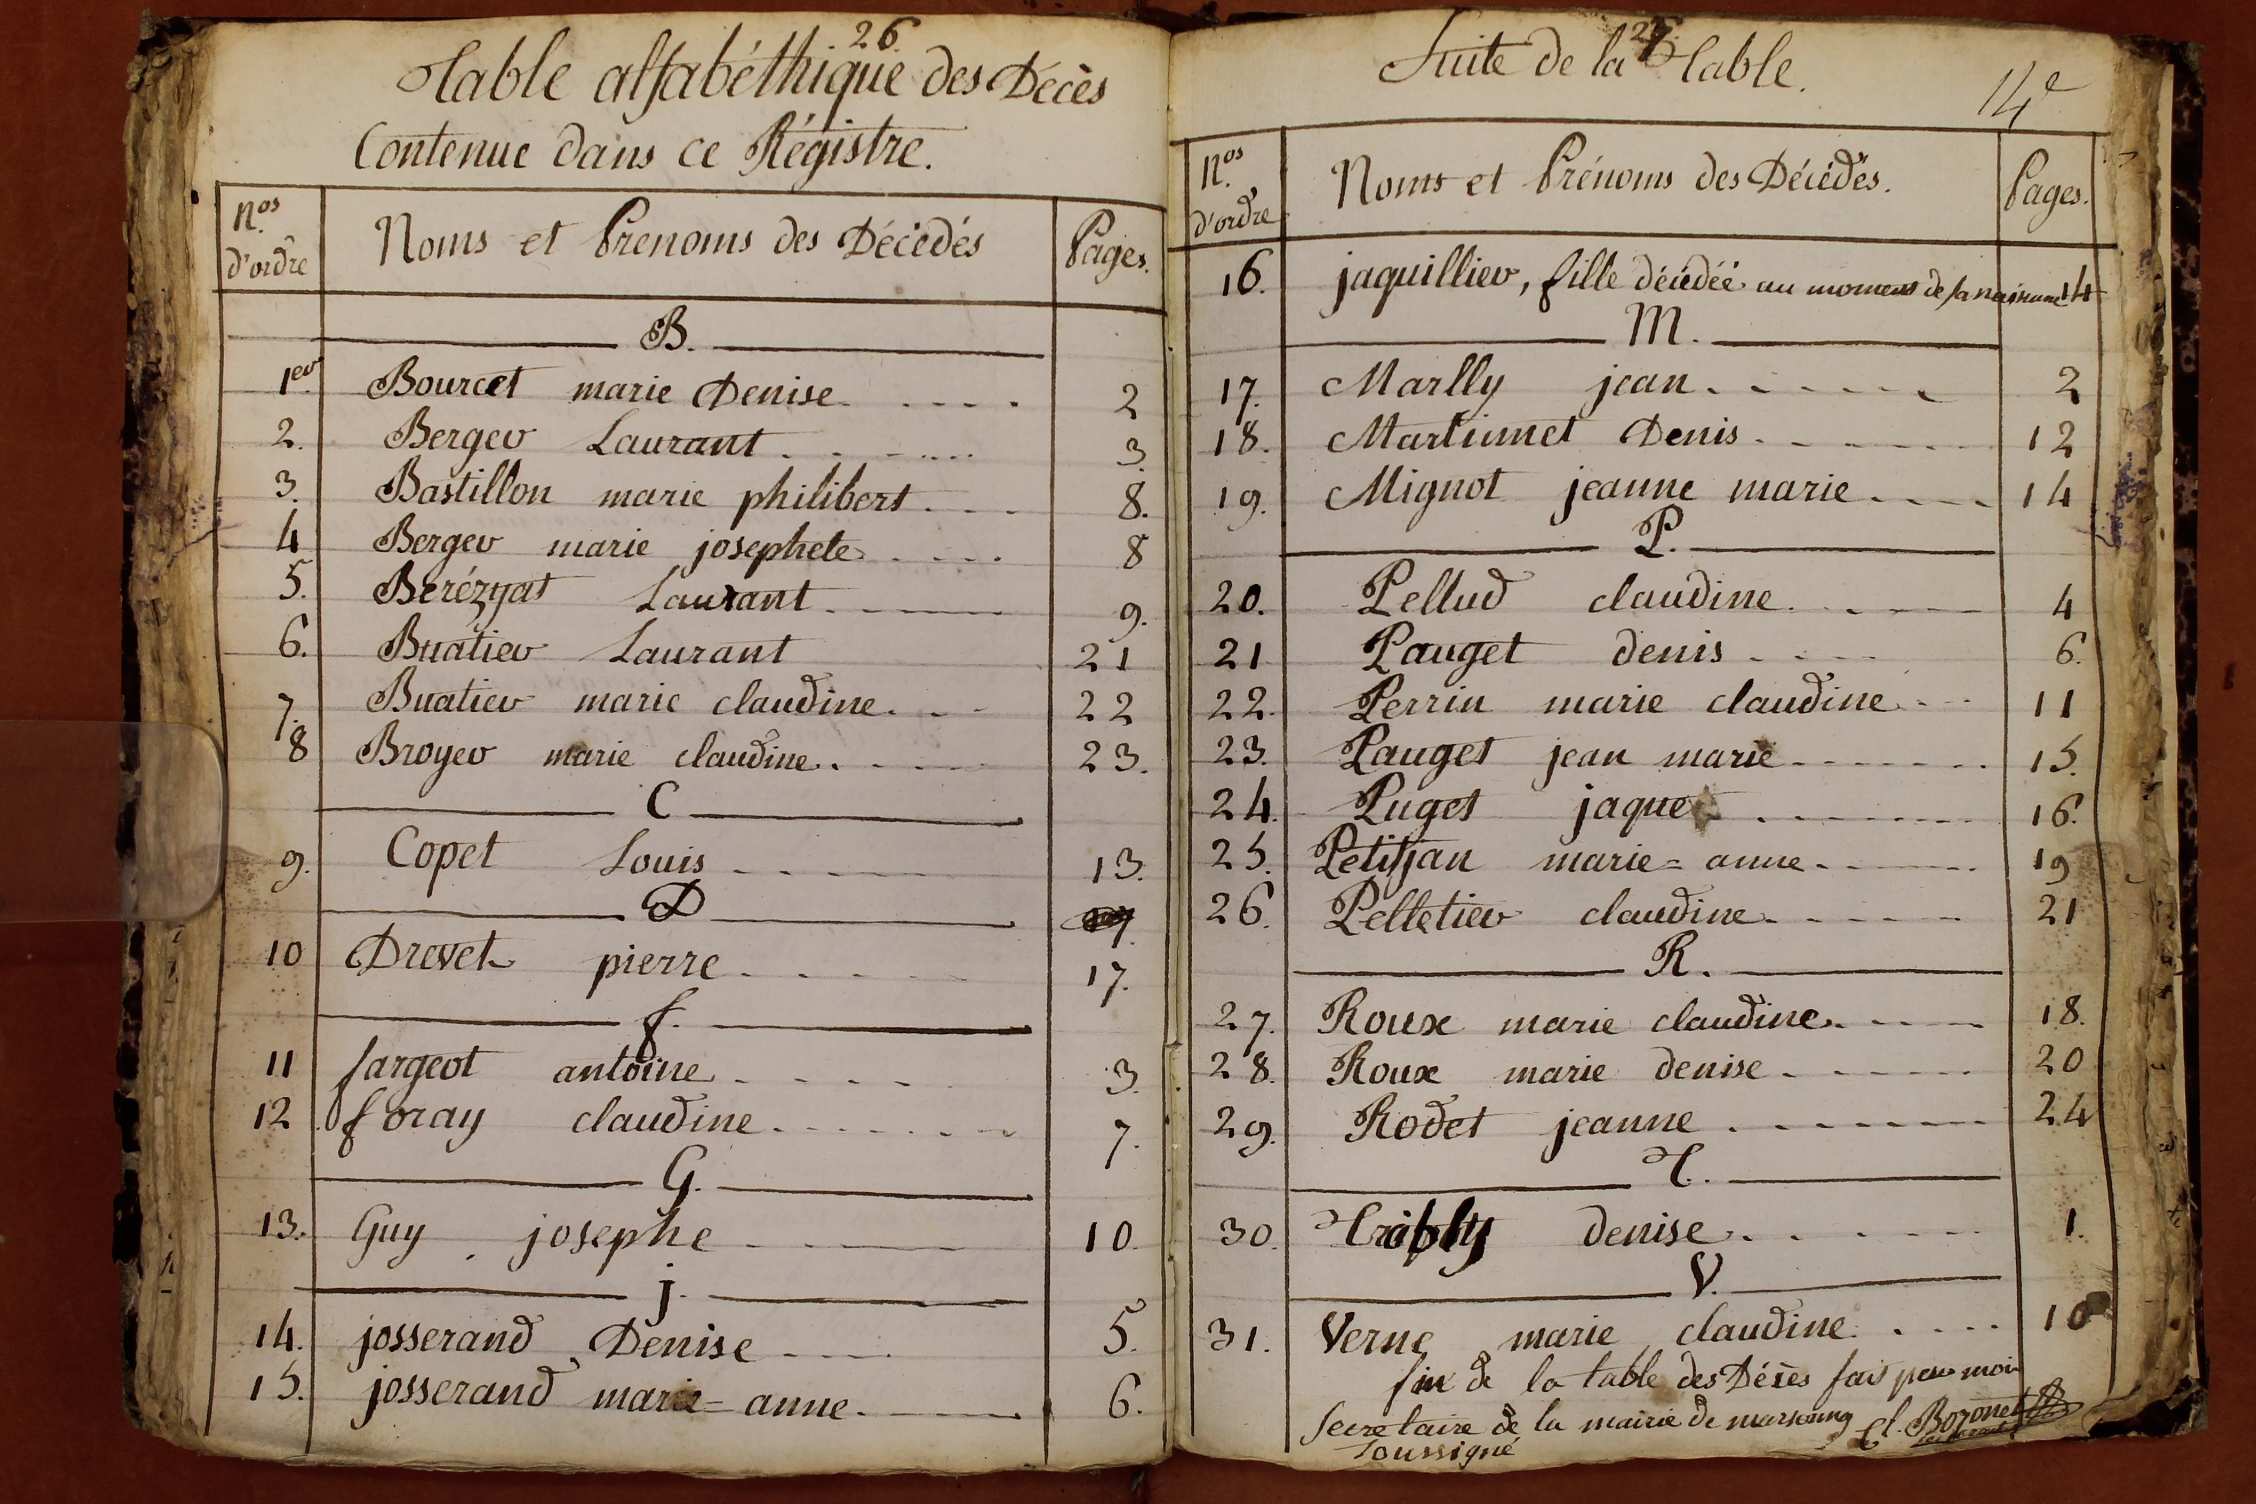 26.
Table alfabéthique des Décès
Contenue dans ce Régistre.
N.os d'ordre Noms et Prenoms des Décédés Pages.
B.
1er Bourcet marie Denise 2
2. Berger Laurant 3.
3. Bastillon marie philibert 8.
4 Berger marie josephete 8
5. Berézyat Laurant 9.
6. Buatier Laurant 21
7. Buatier marie claudine 22
8 Broyer marie claudine 23.
C
9. Copet Louis 13.
D
10 Drevet pierre 17.
f.
11 fargeot antoine 3.
12 foray claudine 7.
G.
13. Guy josephe 10.
j.
14. josserand Denise 5.
15. josserand marie=anne 6.
Suite de la Table.
14e
N.os d'ordre Noms et Prénoms des Décédés. Pages.
16. jaquillier, fille décédée au moment de sa naissance 14
M.
17. Marlly jean 2
18. Martinnet Denis 12
19. Mignot jeanne marie 14
P.
20. Pellud claudine 4
21 Pauget denis 6.
22. Perrin marie claudine 11
23. Pauget jean marie 15.
24. Puget jaque 16.
25. Petitjan marie=anne 19
26. Pelletier claudine 21
R.
27. Roux marie claudine 18.
28. Roux marie denise 20
29. Rodet jeanne 24
T.
30. denise 1.
V.
31. Verne marie claudine 10
fin de la table des Décès fait par moi
Secretaire de la mairie de marsonna Cl. Boronet
Soussigné